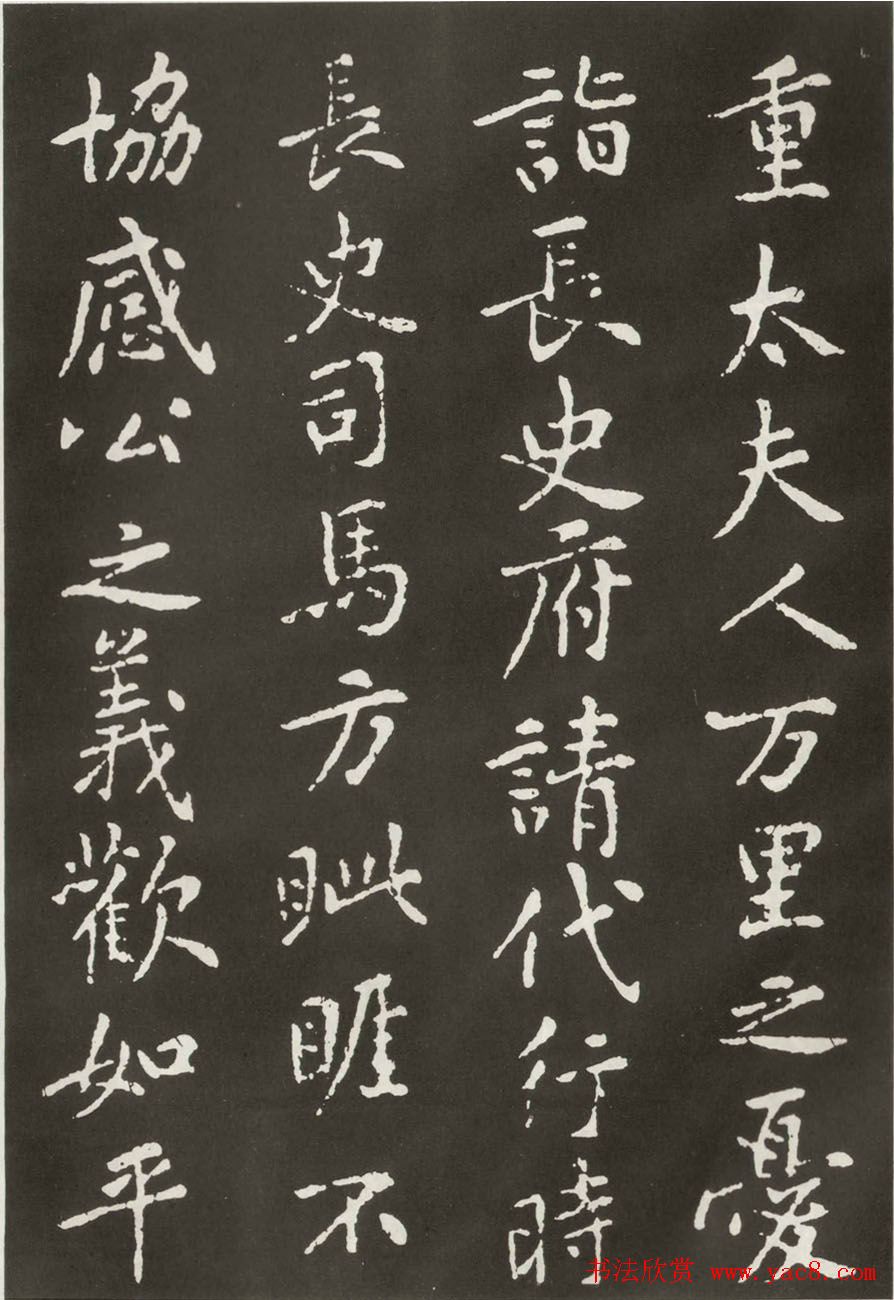 重太夫人万里之憂
詣長史府請代行時
長史司馬方眦睚不
協感公之義歡如平
书法欣赏 www.yac8.com